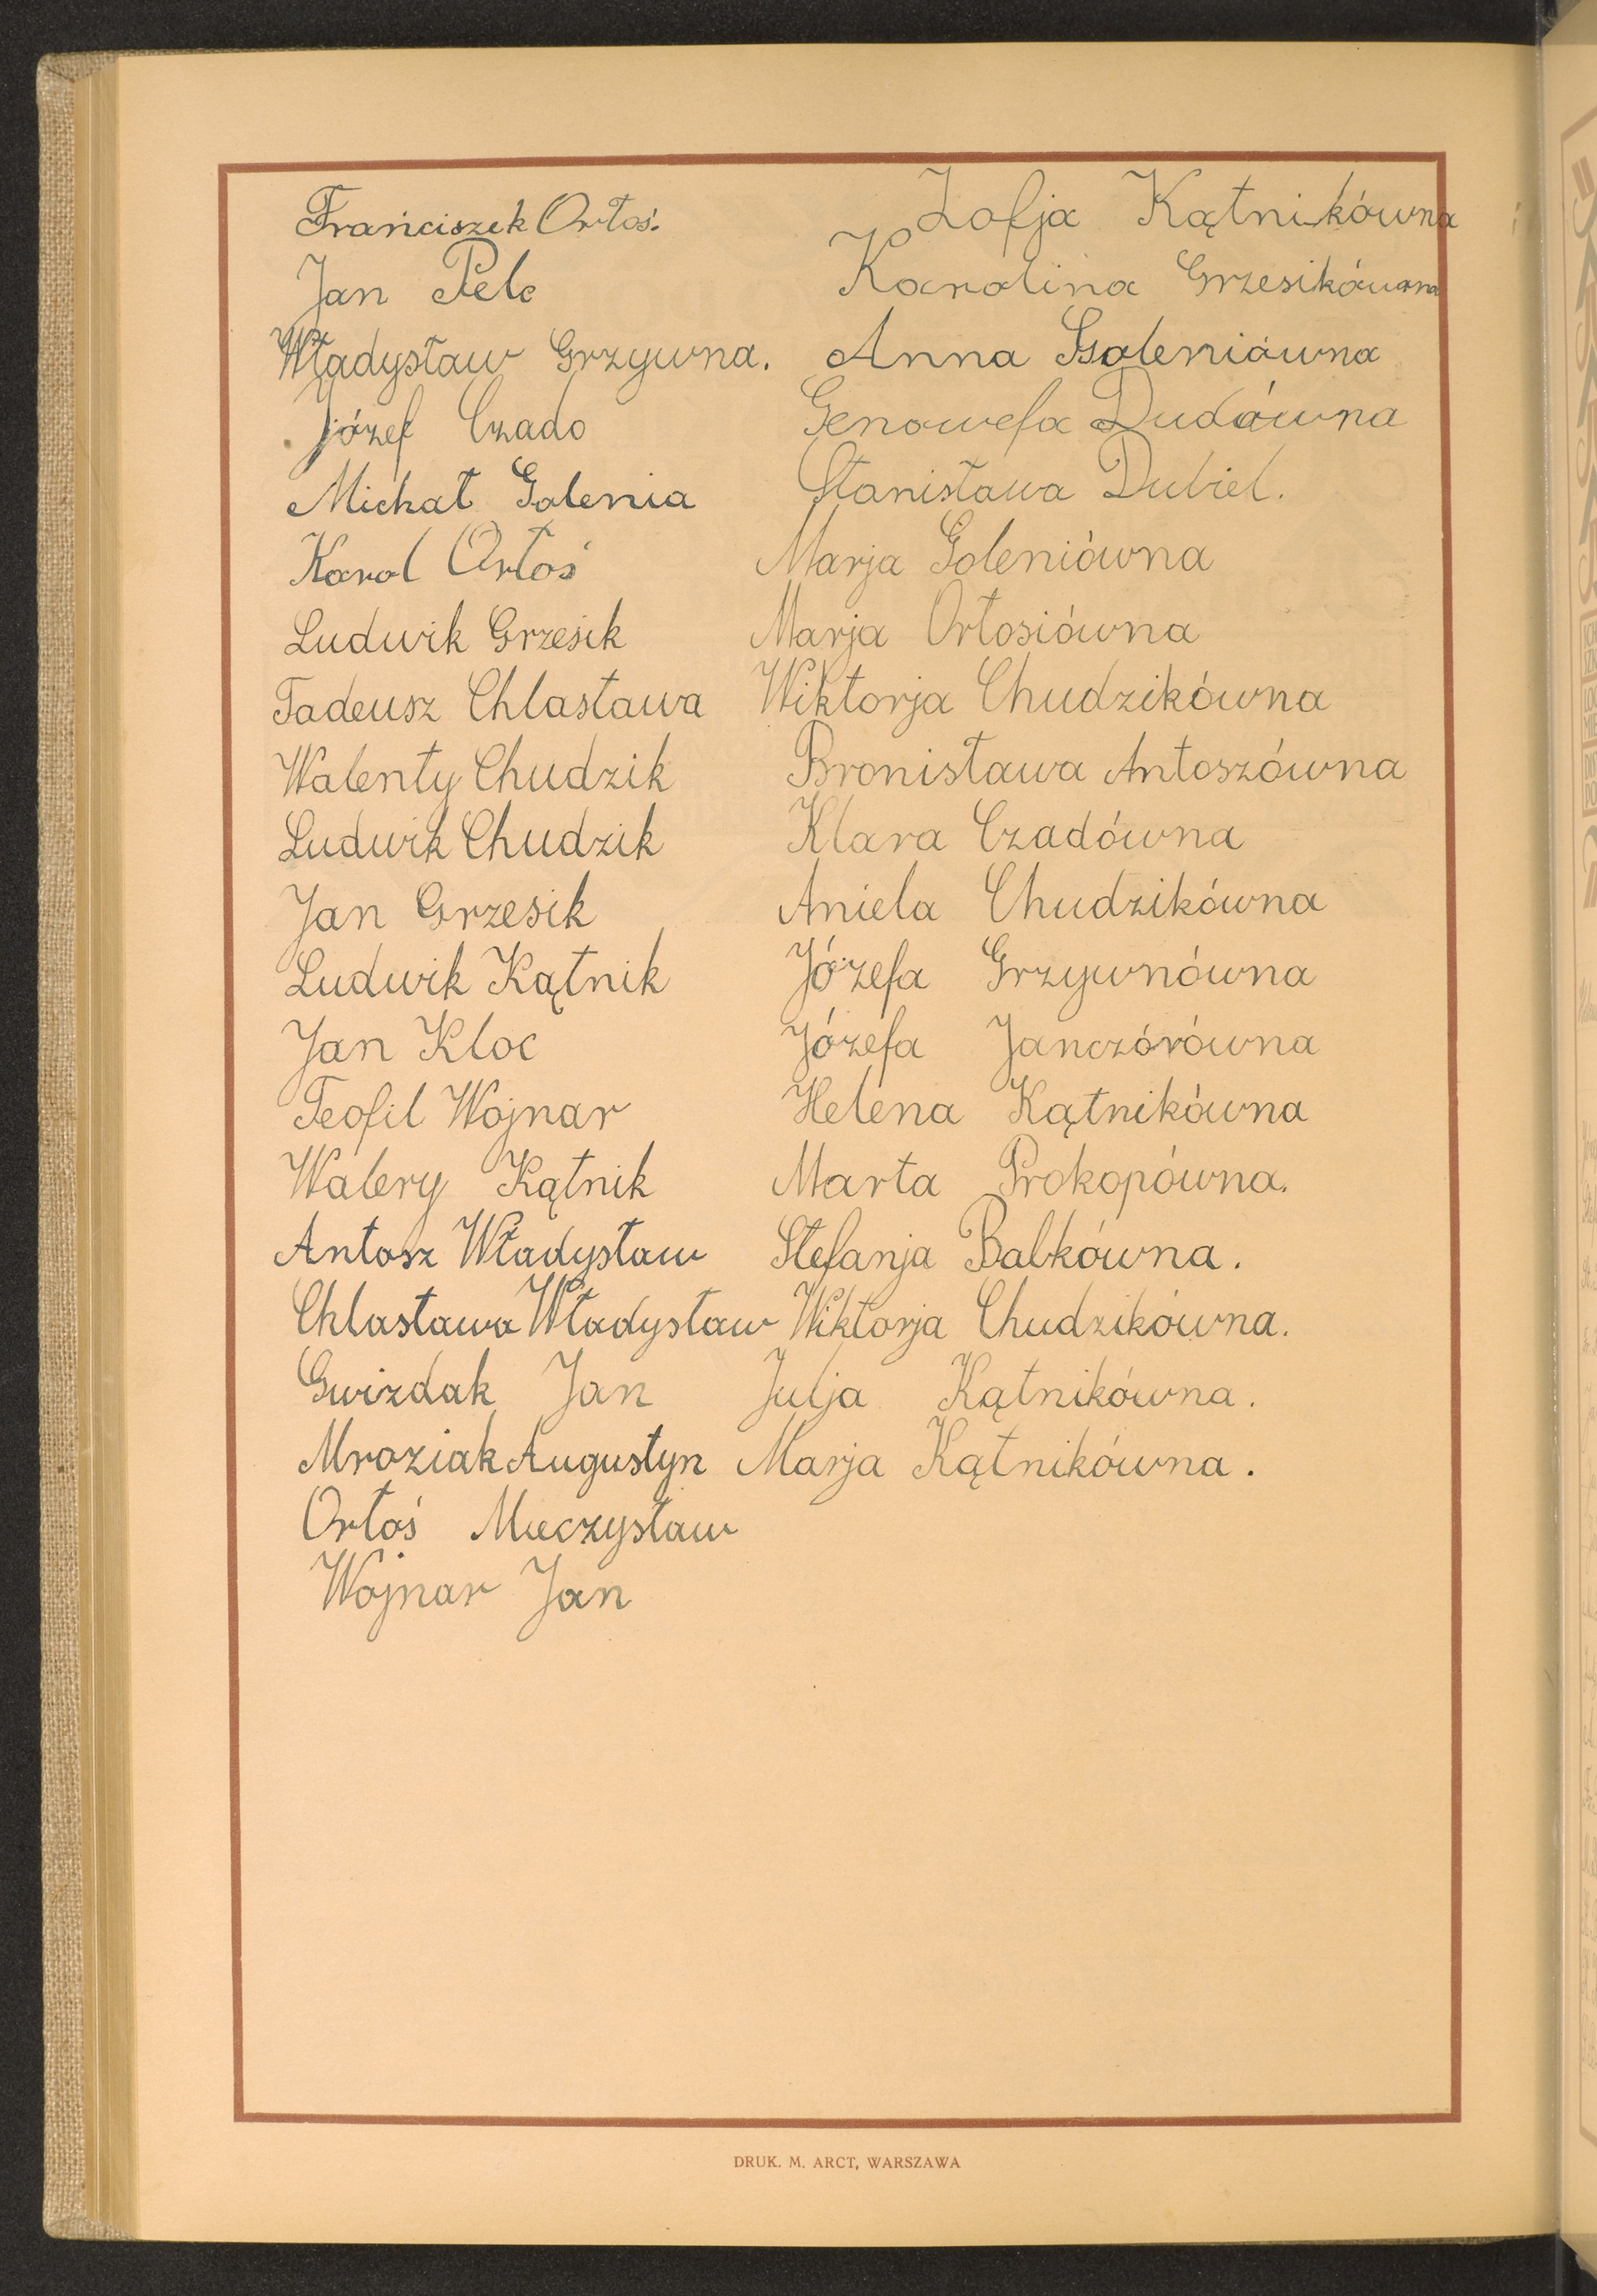 Franciszek Ortoś.
Jan Pelc
Władysław Grzywna.
Józef Czado
Michał Golenia
Karol Ortoś
Ludwik Grzesik
Tadeusz Chlastawa
Walenty Chudzik
Ludwik Chudzik
Jan Grzesik
Ludwik Kątnik
Jan Kloc
Teofil Wojnar
Walery Kątnik
Antosz Władysław
Chlastawa Władysław
Gwizdak Jan
Mroziak Augustyn
Ortoś Mieczysław
Wojnar Jan
Zofja Kątnikówna
Karolina Grzesikówna
Anna Goleniówna
Genowefa Dudówna
Stanisława Dubiel.
Marja Goleniówna
Marja Ortosiówna
Wiktorja Chudzikówna
Bronisława Antoszówna
Klara Czadówna
Aniela Chudzikówna
Józefa Grzywnówna
Józefa Janczórówna
Helena Kątnikówna
Marta Prokopówna.
Stefanja Balkówna.
Wiktorja Chudzikówna.
Julja Kątnikówna.
Marja Kątnikówna.
DRUK. M. ARCT, WARSZAWA